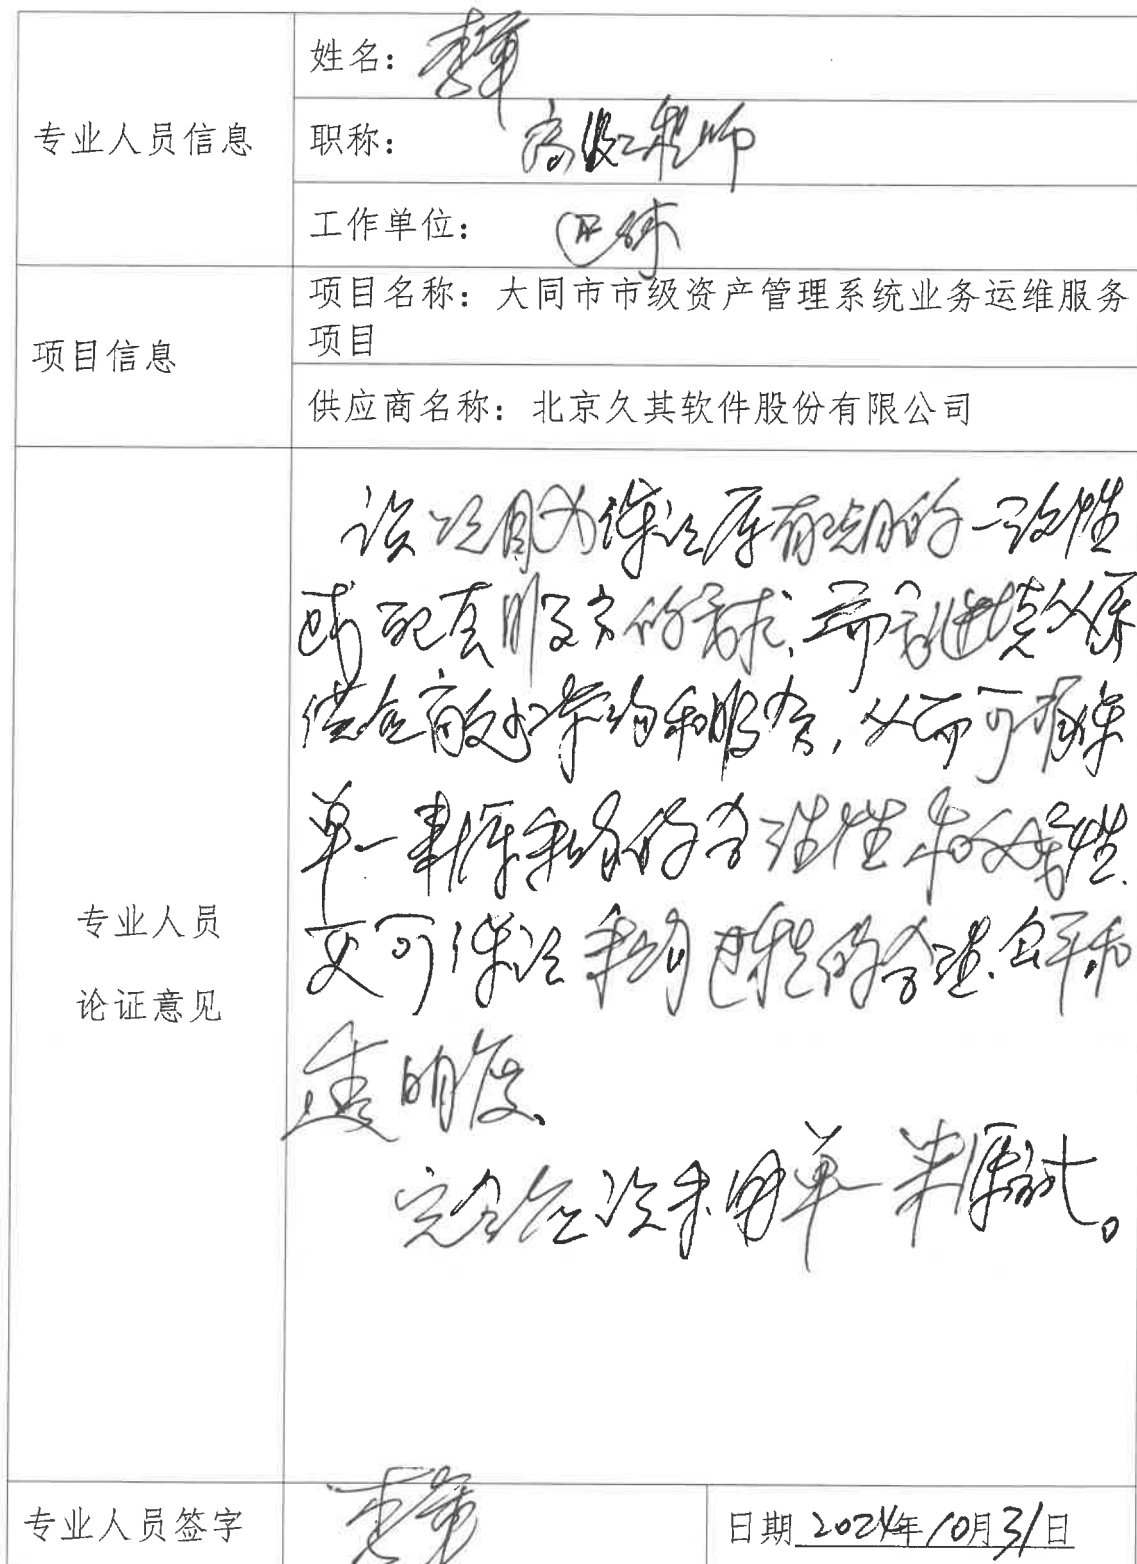 专业人员信息
姓名：李军
职称：高级工程师
工作单位：退休
项目信息
项目名称：大同市市级资产管理系统业务运维服务
项目
供应商名称：北京久其软件股份有限公司
专业人员
论证意见
该项目为保证原有项目的一致性
或配套服务的需求，需要继续从原
供应商处采购和服务，从而可确保
单一来源采购的合理性和必要性，
又可保证采购过程的合理、公平和
透明度、
完全应该采用单一来源方式。
专业人员签字
日期 2024年10月31日